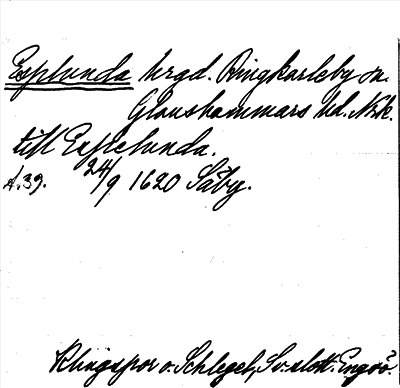 Esplunda hrgd. Ringkarleby sn.
Glanshammars hd. Nrk.
till Espelunda.
A:39. 24/9 1620 Säby.
Klingspor o. Schlegel, Sv. slott. Engsö.